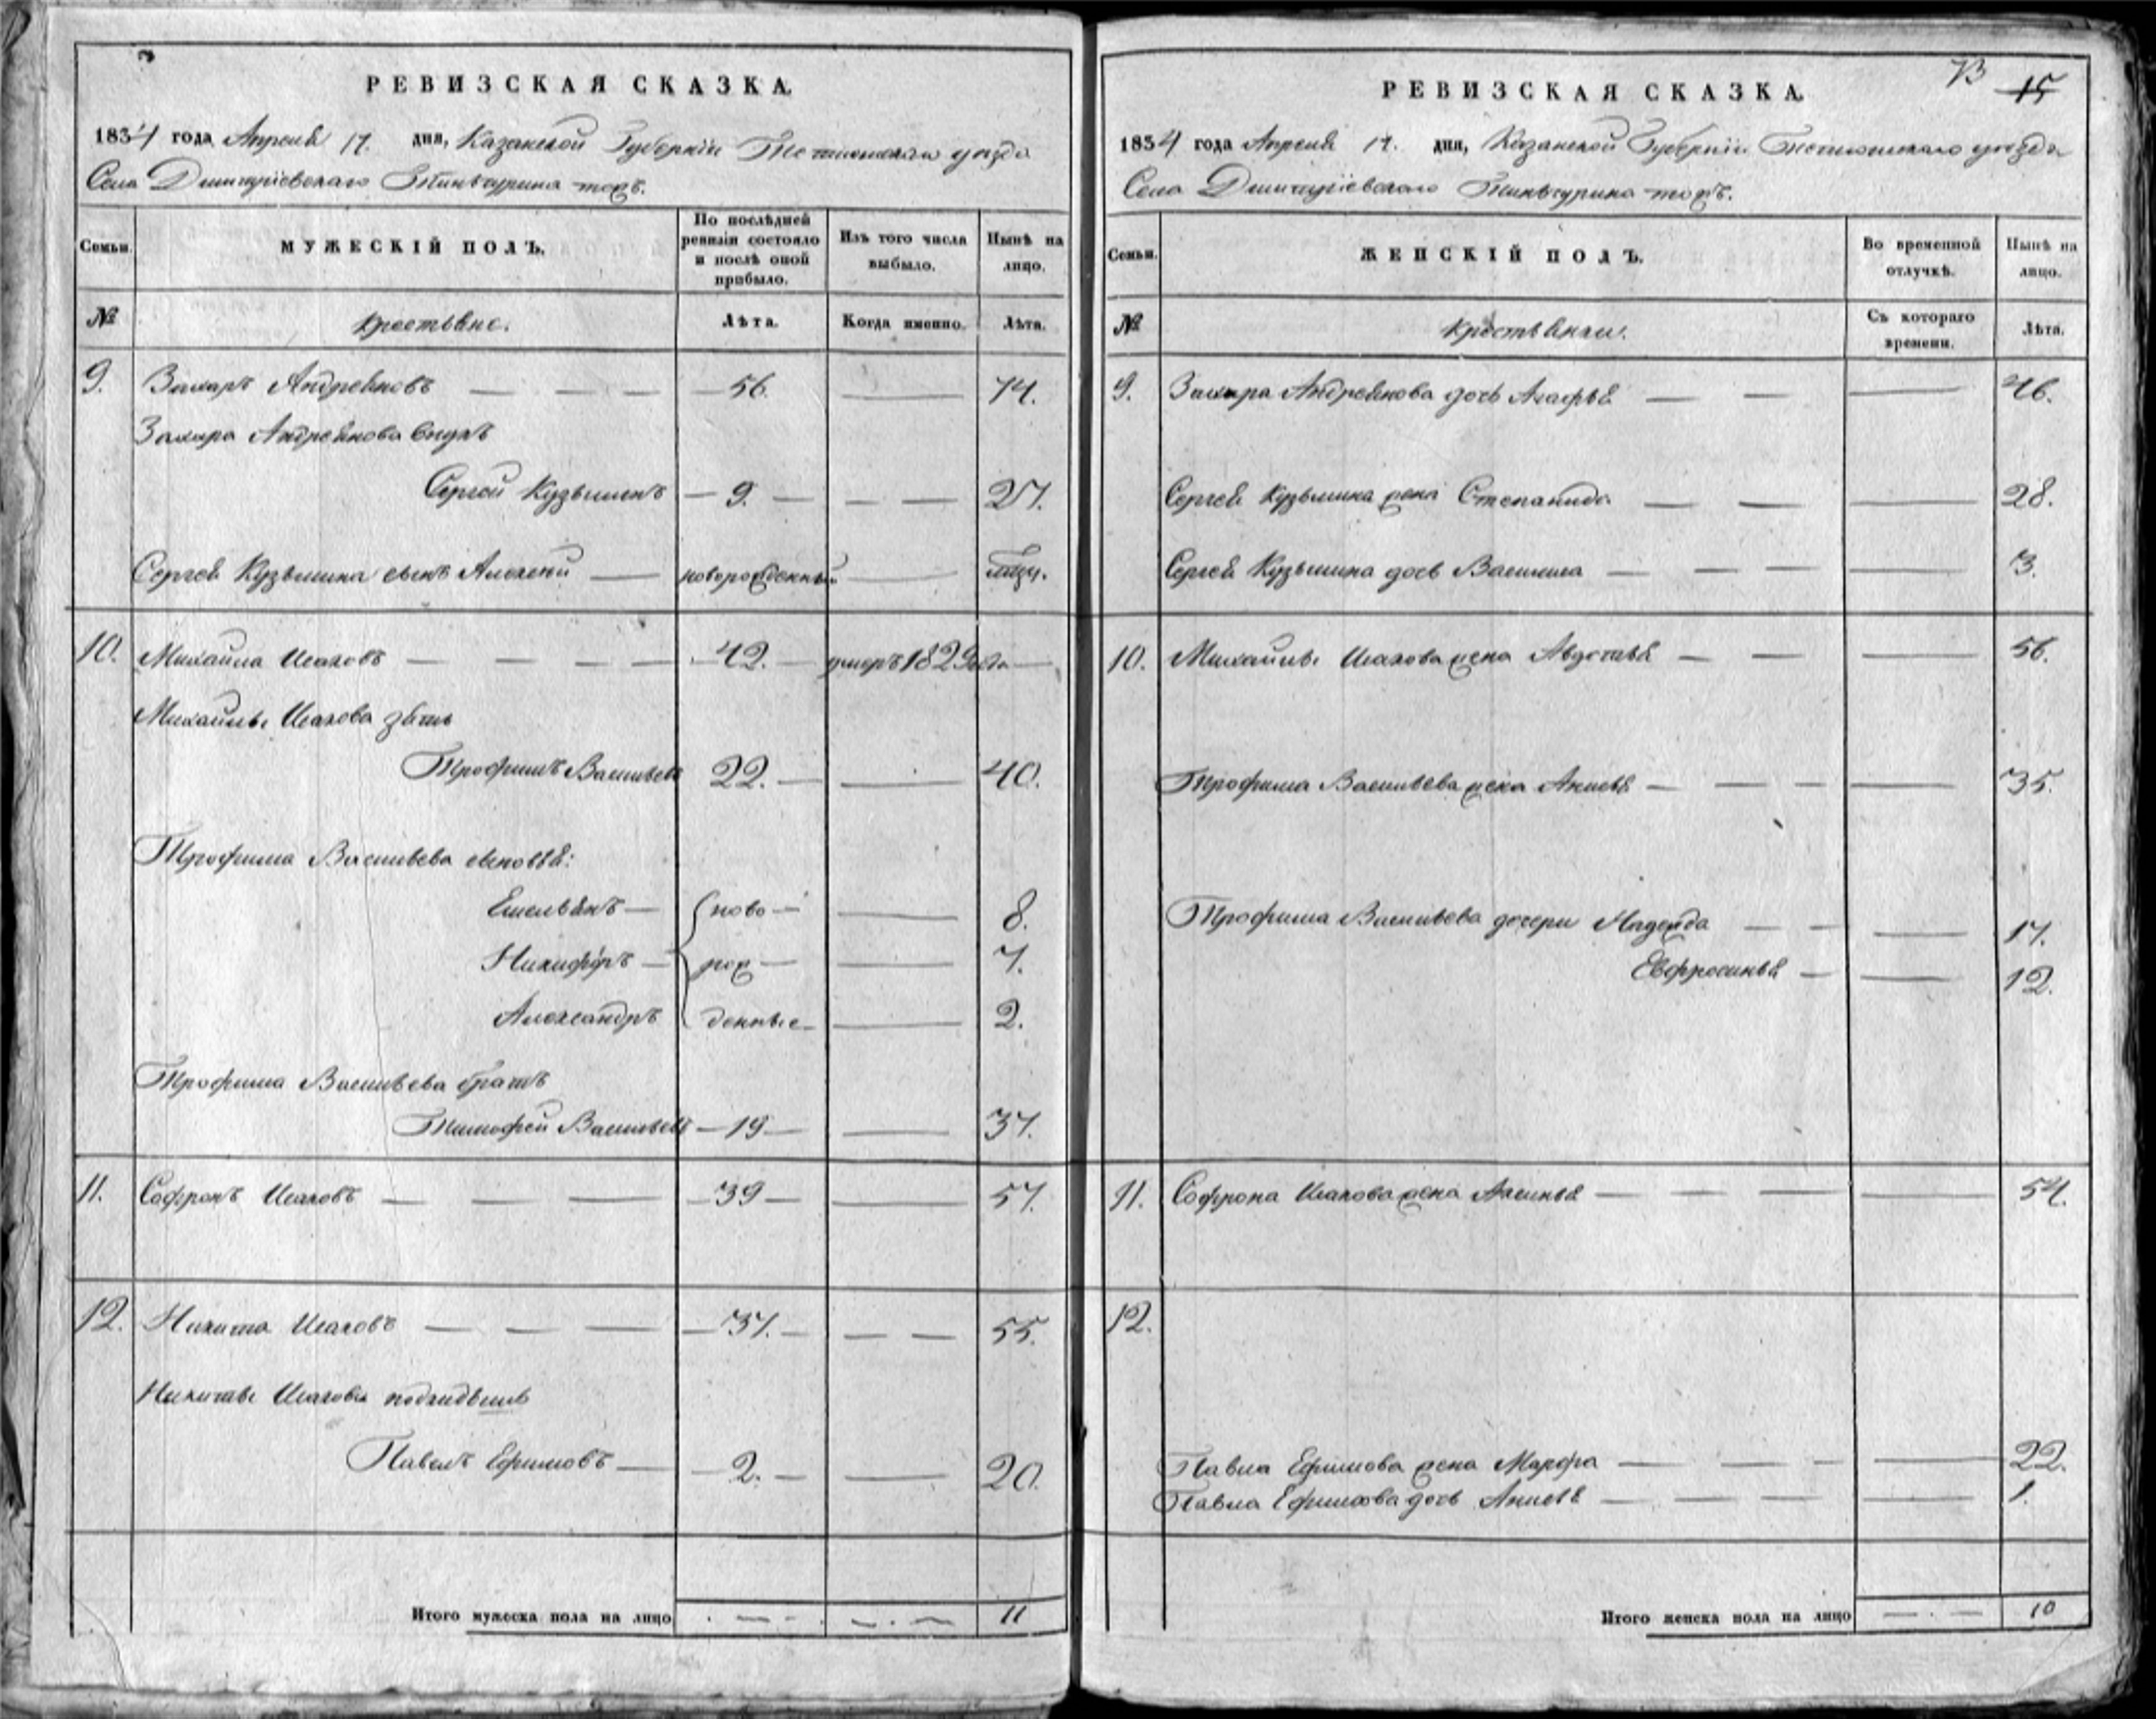 РЕВИЗСКАЯ СКАЗКА.
1834 года Апреля 17. дня, Казанской Губернiи Тетюшскаго уѣзда
Села Дмитрiевскаго Тинчурина тожъ.
Семьи.
МУЖЕСКIЙ ПОЛЪ.
По послѣдней ревизiи состояло и послѣ оной прибыло.
Изъ того числа выбыло.
Нынѣ на лицо.
№
Крестьяне.
Лѣта.
Когда именно.
Лѣта.
9. Захаръ Андреяновъ 56. 74.
Захара Андреянова внукъ
Сергей Кузьминъ 9. 27.
Сергея Кузьмина сынъ Алексей новорожденный
10. Михайла Исаковъ 42. умеръ 1829 года
Михайлы Исакова зять
Трофимъ Васильевъ 22. 40.
Трофима Васильева сыновья:
Емельянъ ново 8.
Никифоръ рож 7.
Александръ денные 2.
Трофима Васильева братъ
Тимофей Васильевъ 19 37.
11. Софронъ Исаковъ 39 57.
12. Никита Исаковъ 37. 55.
Никиты Исакова подкидышъ
Павелъ Ефимовъ 2. 20.
Итого мужеска пола на лицо 11
13 15
РЕВИЗСКАЯ СКАЗКА.
1834 года Апреля 17. дня, Казанской Губернiи Тетюшскаго уѣзда
Села Дмитрiевскаго Тинчурина тожъ.
Семьи.
ЖЕНСКIЙ ПОЛЪ.
Во временной отлучкѣ.
Нынѣ на лицо.
№
Крестьянки.
Съ котораго времени.
Лѣта.
9. Захара Андреянова дочь Агафья 46.
Сергея Кузьмина жена Степанида 28.
Сергея Кузьмина дочь Василиса 3.
10. Михайлы Исакова жена Авдотья 56.
Трофима Васильева жена Анисья 35.
Трофима Васильева дочери Надежда 17.
Евфросинья 12.
11. Софрона Исакова жена Аксинья 54.
12.
Павла Ефимова жена Марфа 22.
Павла Ефимова дочь Анисья 1.
Итого женска пола на лицо 10